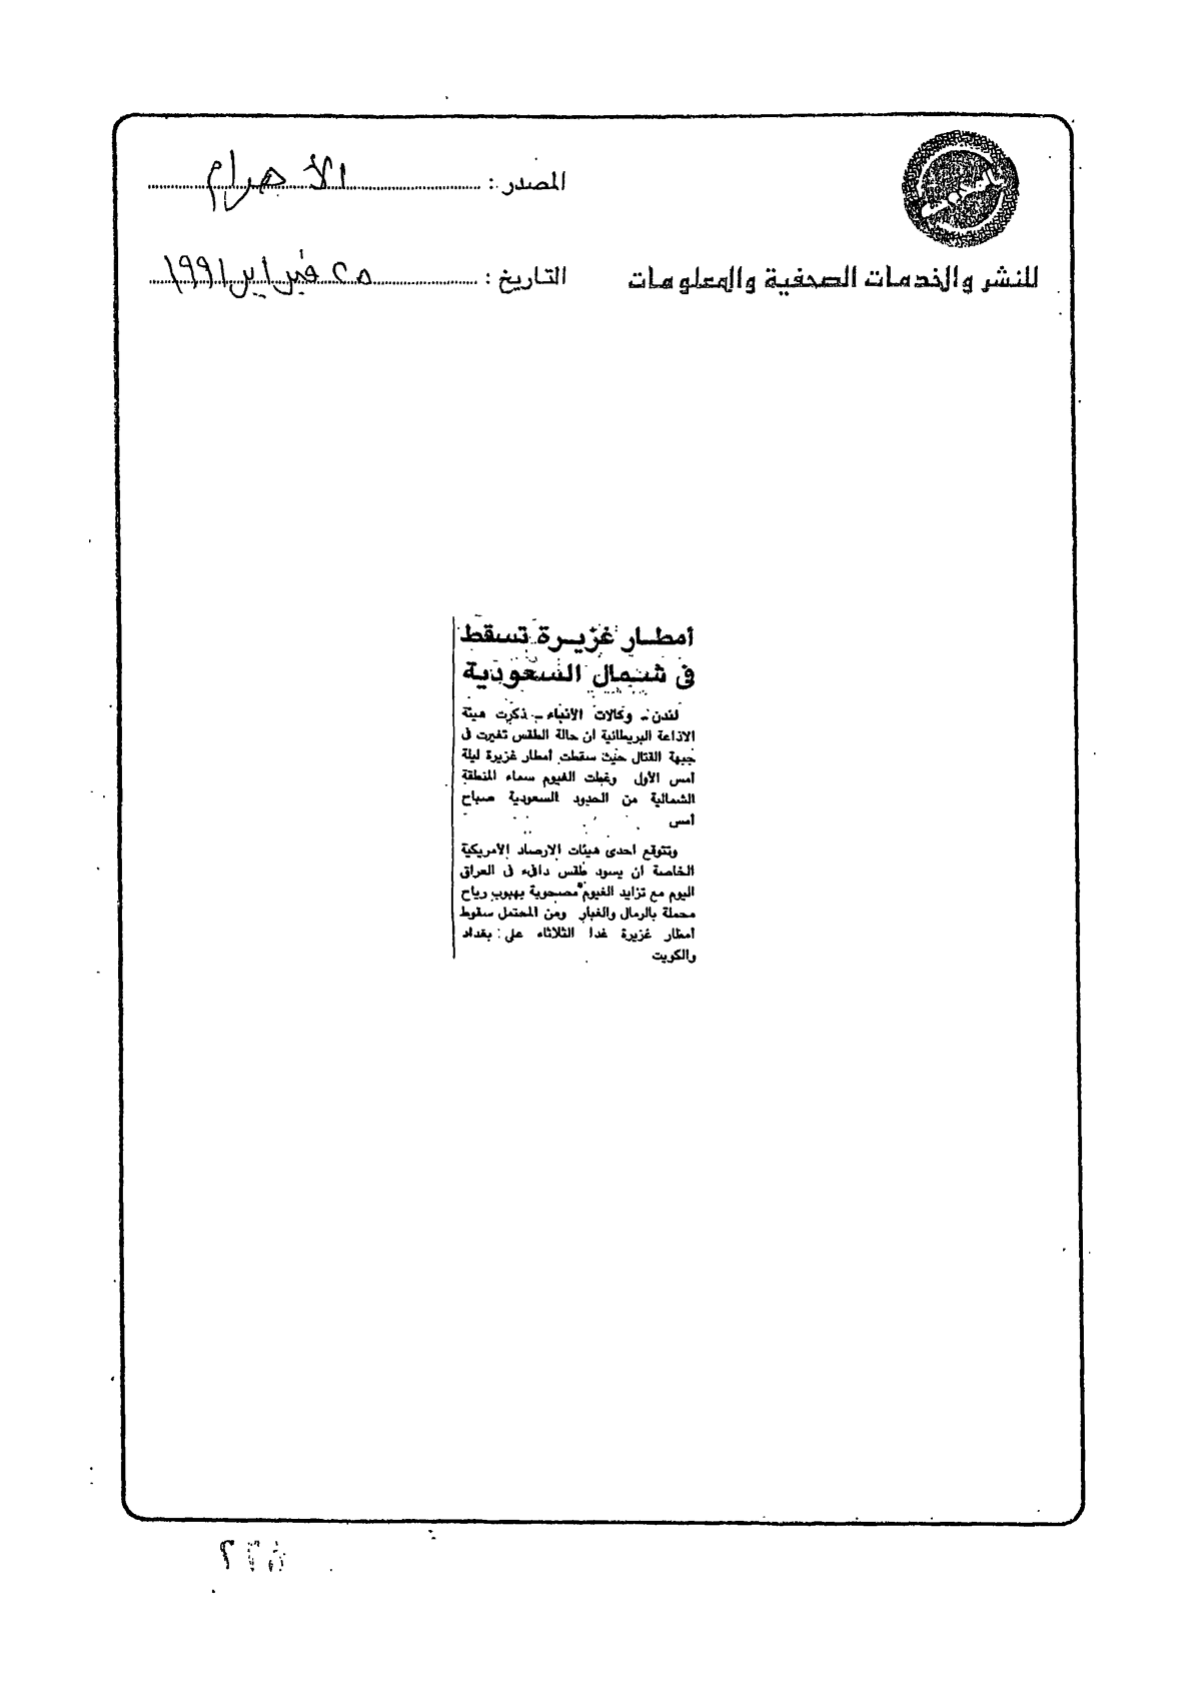 المصدر : الأهرام
للنشر والخدمات الصحفية والمعلومات
التاريخ : ٢٥ فبراير ١٩٩١
أمطار غزيرة تسقط
فى شمال السعودية
لندن ـ وكالات الأنباء ـ ذكرت هيئة
الاذاعة البريطانية ان حالة الطقس تغيرت فى
جبهة القتال حيث سقطت أمطار غزيرة ليلة
أمس الأول وغطت الغيوم سماء المنطقة
الشمالية من الحدود السعودية صباح
أمس
وتتوقع احدى هيئات الارصاد الأمريكية
الخاصة ان يسود طقس دافىء فى العراق
اليوم مع تزايد الغيوم مصحوبة بهبوب رياح
محملة بالرمال والغبار ومن المحتمل سقوط
أمطار غزيرة غدا الثلاثاء على : بغداد
والكويت